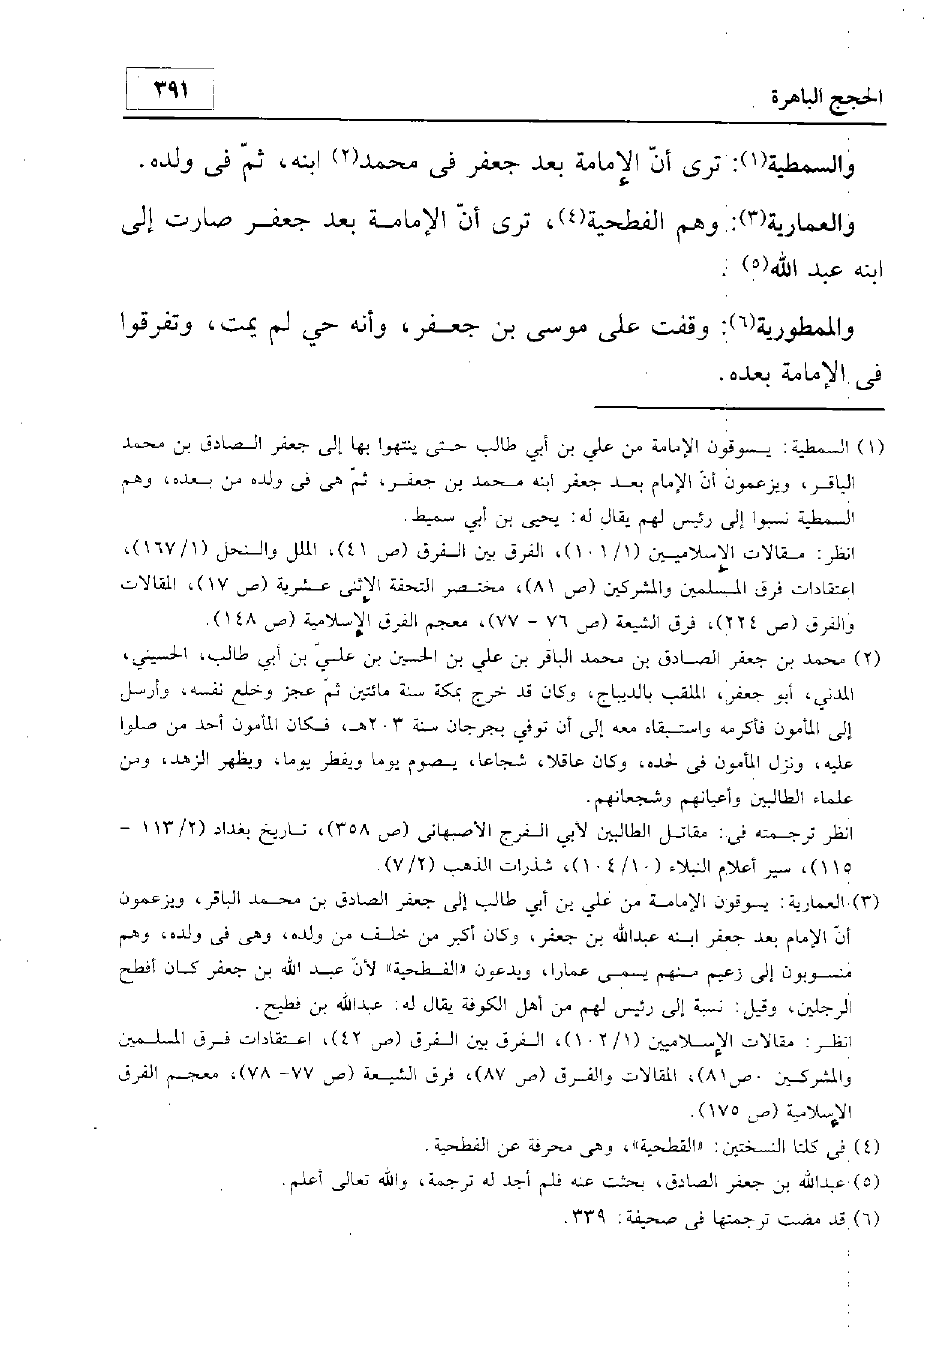 الحجج الباهرة
٣٩١
والسمطية(١): ترى أنّ الإمامة بعد جعفر فى محمد(٢) ابنه، ثمّ فى ولده.
والعمارية(٣): وهم الفطحية(٤)، ترى أنّ الإمامـة بعد جعفـر صارت إلى
ابنه عبد الله(٥).
والممطورية(٦): وقفت على موسى بن جعـفر، وأنه حي لم يمت، وتفرقوا
فى الإمامة بعده.
(١) السمطية: يسوقون الإمامة من علي بن أبي طالب حتى ينتهوا بها إلى جعفر الصادق بن محمد
الباقر، ويزعمون أنّ الإمام بعد جعفر ابنه محمد بن جعفر، ثمّ هى فى ولده من بعده، وهم
السمطية نسبوا إلى رئيس لهم يقال له: يحيى بن أبي سميط.
انظر: مقالات الإسلاميين (١/ ١٠١)، الفرق بين الفرق (ص ٤١)، الملل والنحل (١/ ١٦٧)،
اعتقادات فرق المسلمين والمشركين (ص ٨١)، مختصر التحفة الإثنى عشرية (ص ١٧)، المقالات
والفرق (ص ٢٢٤)، فرق الشيعة (ص ٧٦ - ٧٧)، معجم الفرق الإسلامية (ص ١٤٨).
(٢) محمد بن جعفر الصادق بن محمد الباقر بن علي بن الحسين بن عليّ بن أبي طالب، الحسيني،
المدني، أبو جعفر، الملقب بالديباج، وكان قد خرج بمكة سنة مائتين ثمّ عجز وخلع نفسه، وأرسل
إلى المأمون فأكرمه واستبقاه معه إلى أن توفي بجرجان سنة ٢٠٣هـ، فكان المأمون أحد من صلوا
عليه، ونزل المأمون فى لحده، وكان عاقلا، شجاعا، يصوم يوما ويفطر يوما، ويظهر الزهد، ومن
علماء الطالبين وأعيانهم وشجعانهم.
انظر ترجمته فى: مقاتل الطالبين لأبي الفرج الأصبهانى (ص ٣٥٨)، تاريخ بغداد (٢/ ١١٣ -
١١٥)، سير أعلام النبلاء (١٠/ ١٠٤)، شذرات الذهب (٢/ ٧).
(٣) العمارية: يسوقون الإمامة من علي بن أبي طالب إلى جعفر الصادق بن محمد الباقر، ويزعمون
أنّ الإمام بعد جعفر ابنه عبدالله بن جعفر، وكان أكبر من خلف من ولده، وهى فى ولده، وهم
منسوبون إلى زعيم منهم يسمى عمارا، ويدعون «الفطحية» لأنّ عبد الله بن جعفر كان أفطح
الرجلين، وقيل: نسبة إلى رئيس لهم من أهل الكوفة يقال له: عبدالله بن فطيح.
انظر: مقالات الإسلاميين (١/ ١٠٢)، الفرق بين الفرق (ص ٤٢)، اعتقادات فرق المسلمين
والمشركين ٠ص٨١)، المقالات والفرق (ص ٨٧)، فرق الشيعة (ص ٧٧- ٧٨)، معجم الفرق
الإسلامية (ص ١٧٥).
(٤) فى كلتا النسختين: «القطحية»، وهى محرفة عن الفطحية.
(٥) عبدالله بن جعفر الصادق، بحثت عنه فلم أجد له ترجمة، والله تعالى أعلم.
(٦) قد مضت ترجمتها فى صحيفة: ٣٣٩.